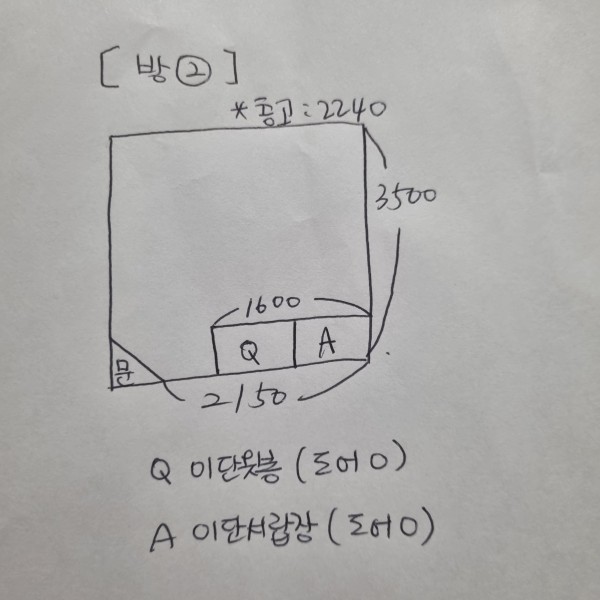 [ 방 ② ]
*층고 : 2240
3500
1600
Q
A
문
2150
Q 이단옷봉 (도어 O)
A 이단서랍장 (도어 O)